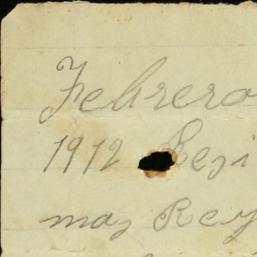 Febrero
1912 Regi
mas Rey